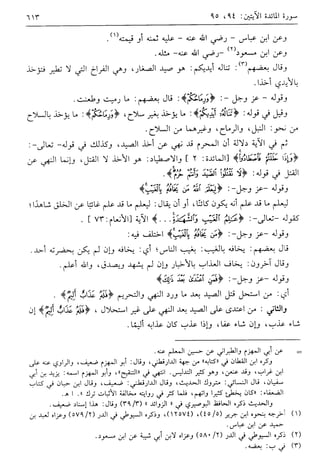 سورة المائدة الآيتين: ٩٤، ٩٥ ٦١٣
وعن ابن عباس - رضي الله عنه - عليه ثمنه أو قيمته(١).
وعن ابن مسعود(٢) - رضي الله عنه - مثله.
وقال بعضهم(٣): تناله أيديكم: هو صيد الصغار، وهي الفراخ التي لا تطير فتؤخذ
بالأيدي أخذا.
وقوله - عز وجل -: ﴿وَرِمَاحُكُمْ﴾: قال بعضهم: ما رميت وطعنت.
وقيل في قوله: ﴿تَنَالُهُۥٓ أَيْدِيكُمْ﴾: ما يؤخذ بغير سلاح، ﴿وَرِمَاحُكُمْ﴾: ما يؤخذ بالسلاح
من نحو: النبل، والرماح، وغيرهما من السلاح.
ثم في الآية دلالة أن المحرم قد نهي عن أخذ الصيد، وكذلك في قوله - تعالى -:
﴿وَإِذَا حَلَلْتُمْ فَٱصْطَادُوا۟﴾ [المائدة: ٢] والاصطياد: هو الأخذ لا القتل، وإنما النهي عن
القتل في قوله: ﴿لَا تَقْتُلُوا۟ ٱلصَّيْدَ وَأَنتُمْ حُرُمٌ﴾.
وقوله - عز وجل -: ﴿لِيَعْلَمَ ٱللَّهُ مَن يَخَافُهُۥ بِٱلْغَيْبِ﴾
ليعلم ما قد علم أنه يكون كائنًا، أو أن يقال: ليعلم ما قد علم غائبًا عن الخلق شاهدًا؛
كقوله - تعالى -: ﴿عَـٰلِمُ ٱلْغَيْبِ وَٱلشَّهَـٰدَةِ...﴾ الآية [الأنعام: ٧٣].
وقوله - عز وجل -: ﴿مَن يَخَافُهُۥ بِٱلْغَيْبِ﴾ اختلف فيه:
قال بعضهم: يخافه بالغيب: بغيب الناس؛ أي: يخافه وإن لم يكن بحضرته أحد.
وقال آخرون: يخاف العذاب بالأخبار وإن لم يشهد ويصدق، والله أعلم.
وقوله - عز وجل -: ﴿فَمَنِ ٱعْتَدَىٰ بَعْدَ ذَٰلِكَ﴾
أي: من استحل قتل الصيد بعد ما ورد النهي والتحريم ﴿فَلَهُۥ عَذَابٌ أَلِيمٌ﴾.
والثاني: من اعتدى على الصيد بعد النهي على غير استحلال، ﴿فَلَهُۥ عَذَابٌ أَلِيمٌ﴾ إن
شاء عذب، وإن شاء عفا، وإذا عذب كان عذابه أليمًا.
= عن أبي المهزم والطبراني عن حسين المعلم عنه.
وذكره ابن القطان في «كتابه» من جهة الدارقطني، وقال: أبو المهزم ضعيف، والراوي عنه علي
ابن غراب، وقد عنعن، وهو كثير التدليس. انتهى. قال في «التنقيح»: وأبو المهزم اسمه: يزيد بن أبي
سفيان، قال النسائي: متروك الحديث، وقال الدارقطني: ضعيف، وقال ابن حبان في كتاب
الضعفاء: «كان يخطئ كثيرًا واتهم، فلما كثر في روايته مخالفة الأثبات ترك» ا. هـ.
والحديث ذكره الحافظ البوصيري في «الزوائد» (٣٩/٣) وقال: هذا إسناد ضعيف.
(١) أخرجه بنحوه ابن جرير (٤٥/٥) (١٢٥٧٤)، وذكره السيوطي في الدر (٥٧٩/٢) وعزاه لعبد بن
حميد عن ابن عباس.
(٢) ذكره السيوطي في الدر (٥٨٠/٢) وعزاه لابن أبي شيبة عن ابن مسعود.
(٣) في ب: بعضه.